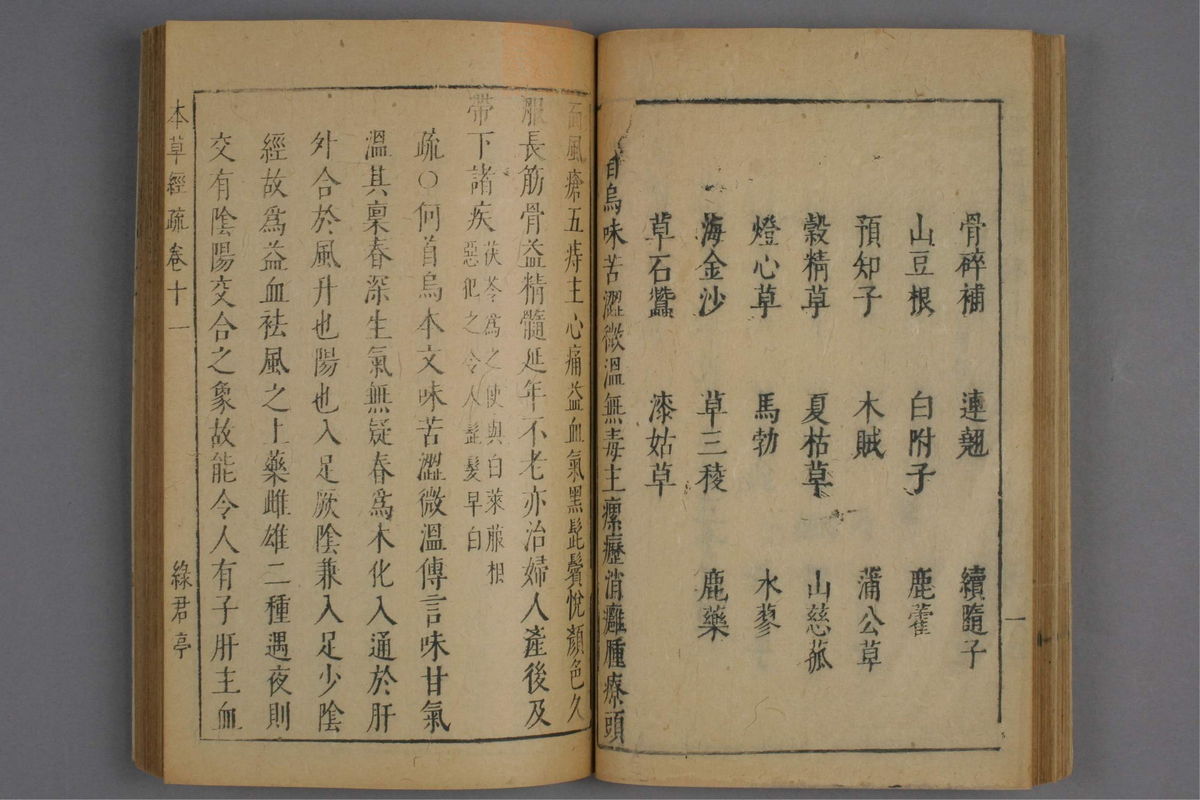 骨碎補 連翹 續隨子
山豆根 白附子 鹿藿
預知子 木賊 蒲公草
穀精草 夏枯草 山慈菰
燈心草 馬勃 水蓼
海金沙 草三稜 鹿藥
草石蠶 漆姑草
首烏味苦澀微溫無毒主瘰癧消癰腫療頭
一
面風瘡五痔主心痛益血氣黑髭鬢悅顏色久
服長筋骨益精髓延年不老亦治婦人產後及
帶下諸疾
茯苓為之使與白萊菔相
惡犯之令人髭髮早白
疏○何首烏本文味苦澀微溫傳言味甘氣
溫其稟春深生氣無疑春爲木化入通於肝
外合於風升也陽也入足厥陰兼入足少陰
經故爲益血祛風之上藥雌雄二種遇夜則
交有陰陽交合之象故能令人有子肝主血
本草經疏 卷十一 綠君亭